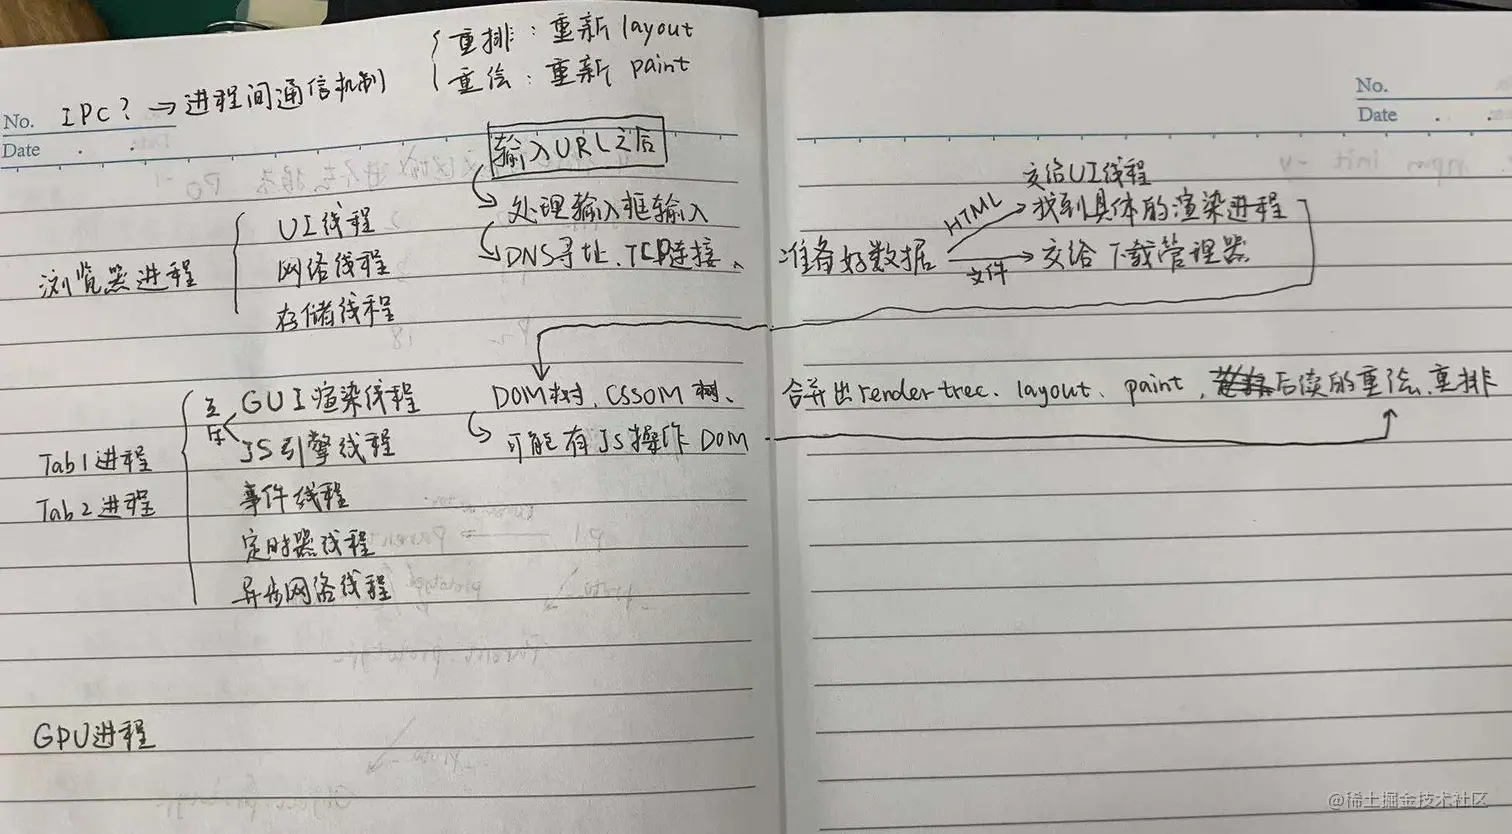 重排：重新 layout
重绘：重新 paint
No. IPC? → 进程间通信机制
Date
输入URL之后
UI线程
处理输入框输入
浏览器进程
网络线程
DNS寻址、TCP连接、
存储线程
互斥
GUI渲染线程
DOM树、CSSOM树、
JS引擎线程
可能有JS操作DOM
Tab1进程
Tab2进程
事件线程
定时器线程
异步网络线程
GPU进程
No.
Date
交给UI线程
HTML
找到具体的渲染进程
准备好数据
文件
交给下载管理器
合并出render tree、layout、paint、后续的重绘、重排
@稀土掘金技术社区